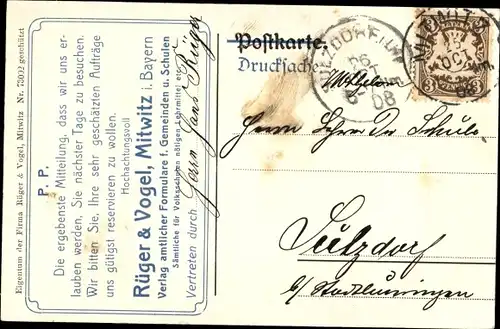 Eigentum der Firma Rüger & Vogel, Mitwitz Nr. 73022 geschützt
P. P.
Die ergebenste Mitteilung, dass wir uns er-
lauben werden, Sie nächster Tage zu besuchen.
Wir bitten Sie, Ihre sehr geschätzten Aufträge
uns gütigst reservieren zu wollen.
Hochachtungsvoll
Rüger & Vogel, Mitwitz i. Bayern
Verlag amtlicher Formulare f. Gemeinden u. Schulen
Sämtliche für Volksschulen nötigen Lehrmittel etc.
Vertreten durch Herrn Hans Rüger
Postkarte.
Drucksache
MITWITZ
OCT
08
3
3
08
Herrn
Sulzdorf
b/ Stadtlauringen